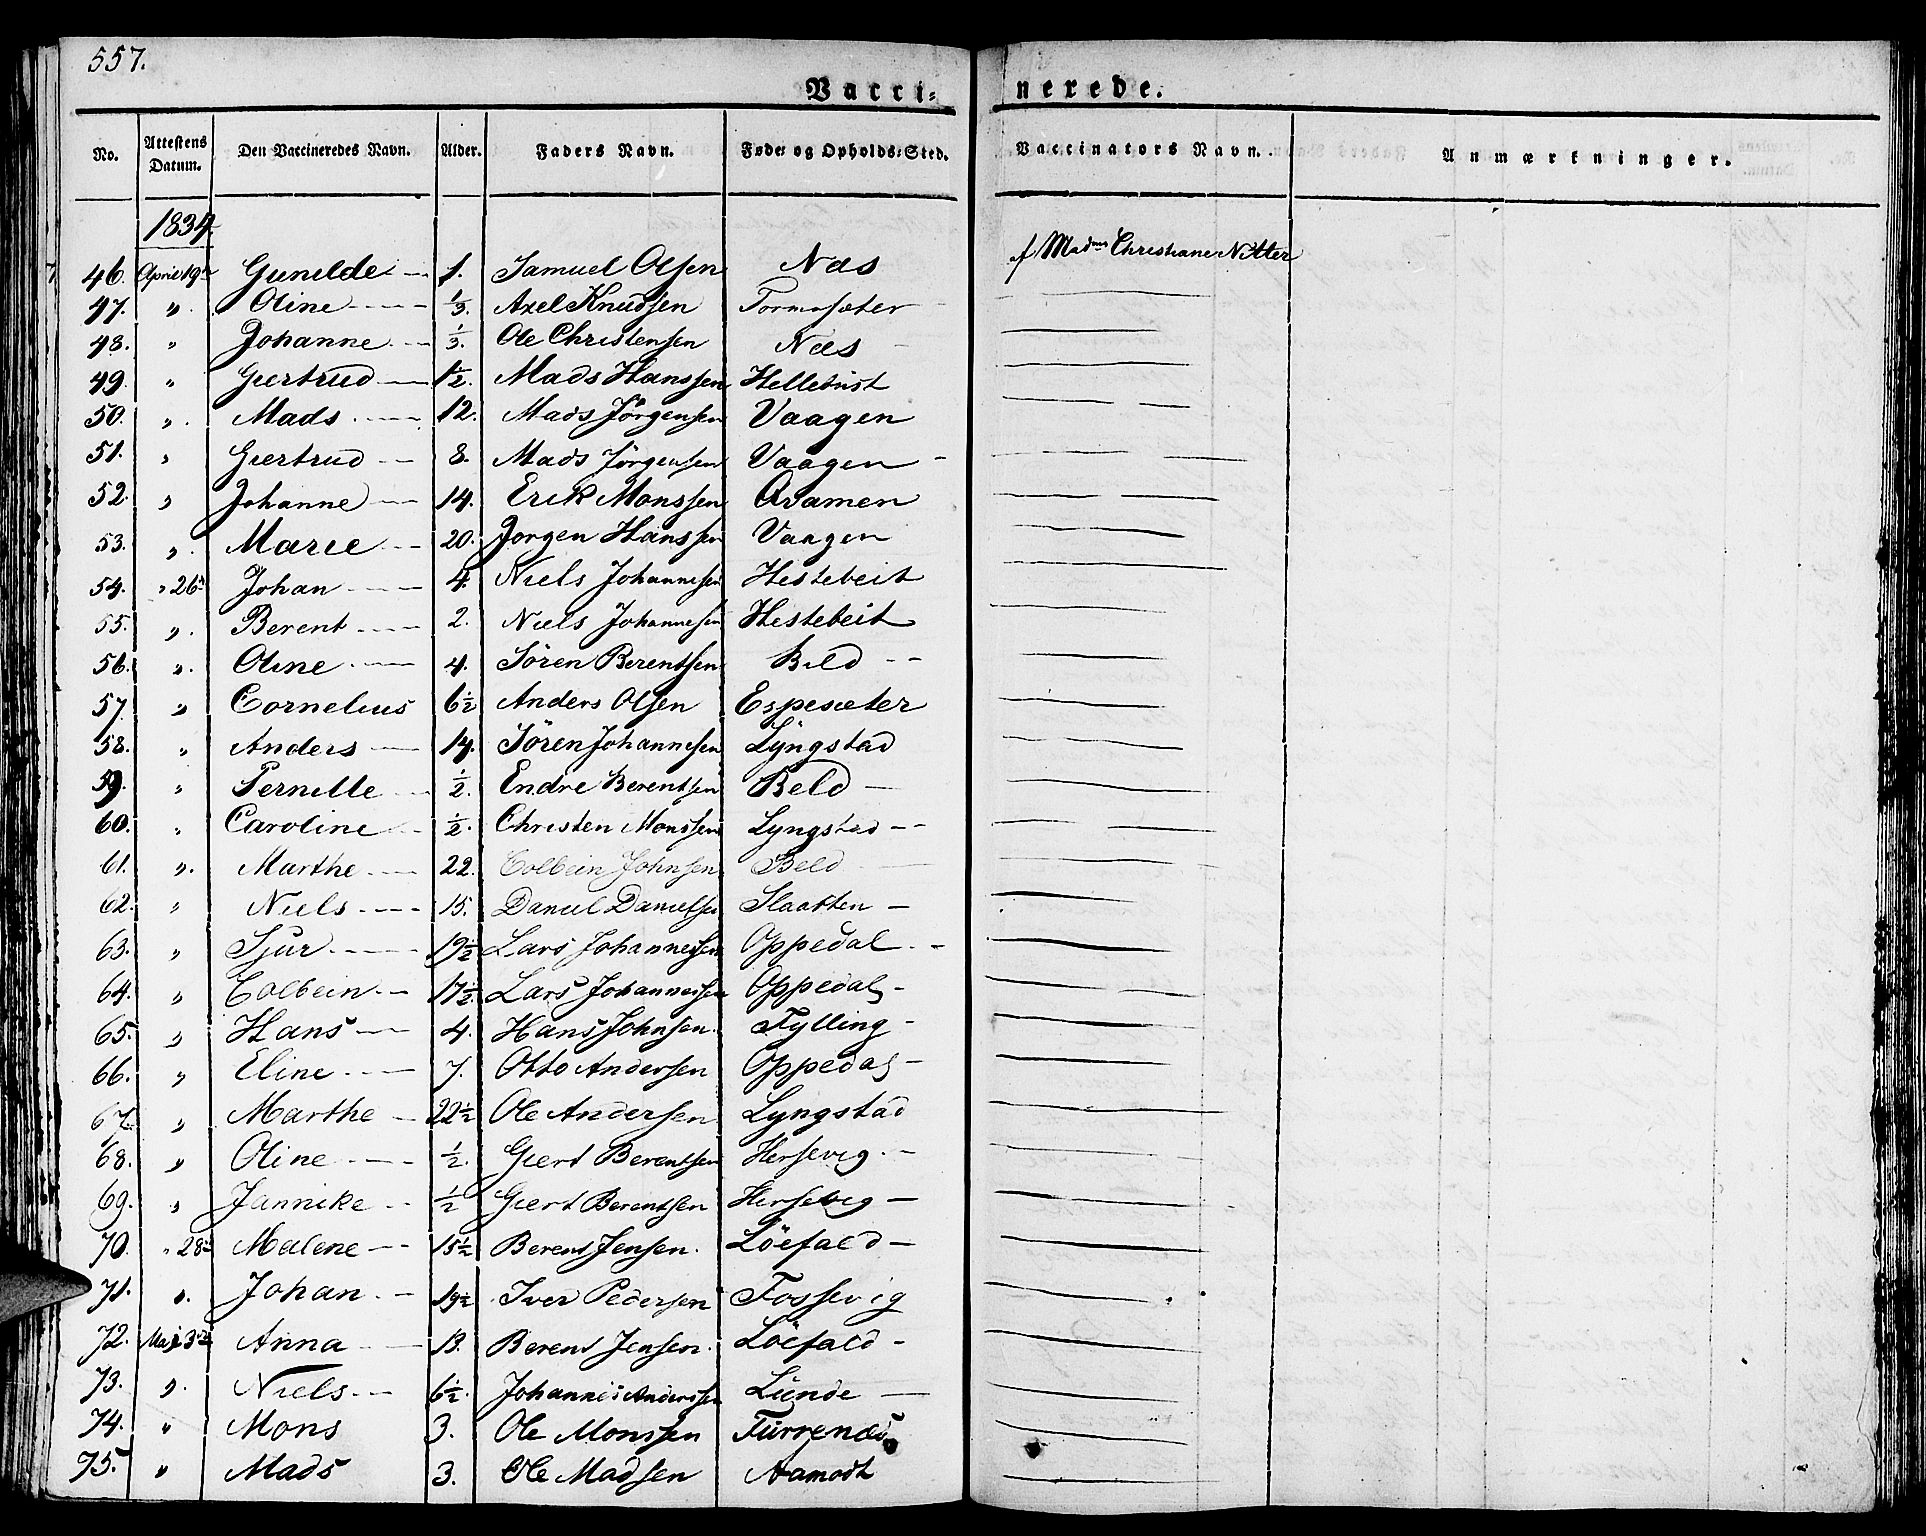 557.
Vacci= nerede.
No. Attestens Datum. Den Vaccineredes Navn. Alder. Faders Navn. Føde= og Opholds=Sted. Vaccinators Navn. Anmærkninger.
1834.
46. April 19de Gunilde — 1. Samuel Olsen Næs Christiane Nitter
47. " Oline — 1/3. Axel Knudsen Tormosæter
48. " Johanne — 1/3. Ole Christensen Næs —
49. " Giertrud — 1½. Mads Hanssen
50. " Mads — 12. Mads Jørgensen Vaagen
51. " Giertrud — 8. Mads Jørgensen Vaagen —
52. " Johanne — 14. Erik Monssen
53. " Marie — 20. Jørgen Hanssen Vaagen
54. " 26de Johan — 4. Niels Johannesen Hestebeit
55. " Berent — 2. Niels Johannesen Hestebeit
56. " Oline — 4. Sören Berentsen Beld —
57. " Cornelius 6½ Anders Olsen Espesæter
58. " Anders — 14. Sören Johannesen Lÿngstad
59. " Pernille — ½. Endre Berentsen Beld —
60. " Caroline — ½. Christen Monssen Lyngstad —
61. " Marthe — 22. Colbein Johnsen Beld —
62. " Niels — 15. Daniel Danielsen Slaatten —
63. " Sjur — 19½ Lars Johannessen Oppedal —
64. " Colbein — 17½ Lars Johannessen Oppedal —
65. " Hans — 4. Hans Johnsen Fylling —
66. " Eline — 7. Otto Andersen Oppedal —
67. " Marthe — 22½ Ole Andersen Lyngstad
68. " Oline — ½. Giert Berentsen Hersevig —
69. " Jannike — ½ Giert Berentsen Hersevig —
70. " 28de Malene — 15½ Berent Jensen. Löefald —
71. " Johan — 19½ Iver Pedersen Fossevig
72. Maj 3die Anna — 13. Berent Jensen. Löefald —
73. " Niels — 6½. Johannes Anderssen Lunde —
74. " Mons 3. Ole Monssen Furrenæs
75. " Mads 3. Ole Madsen Aamodt